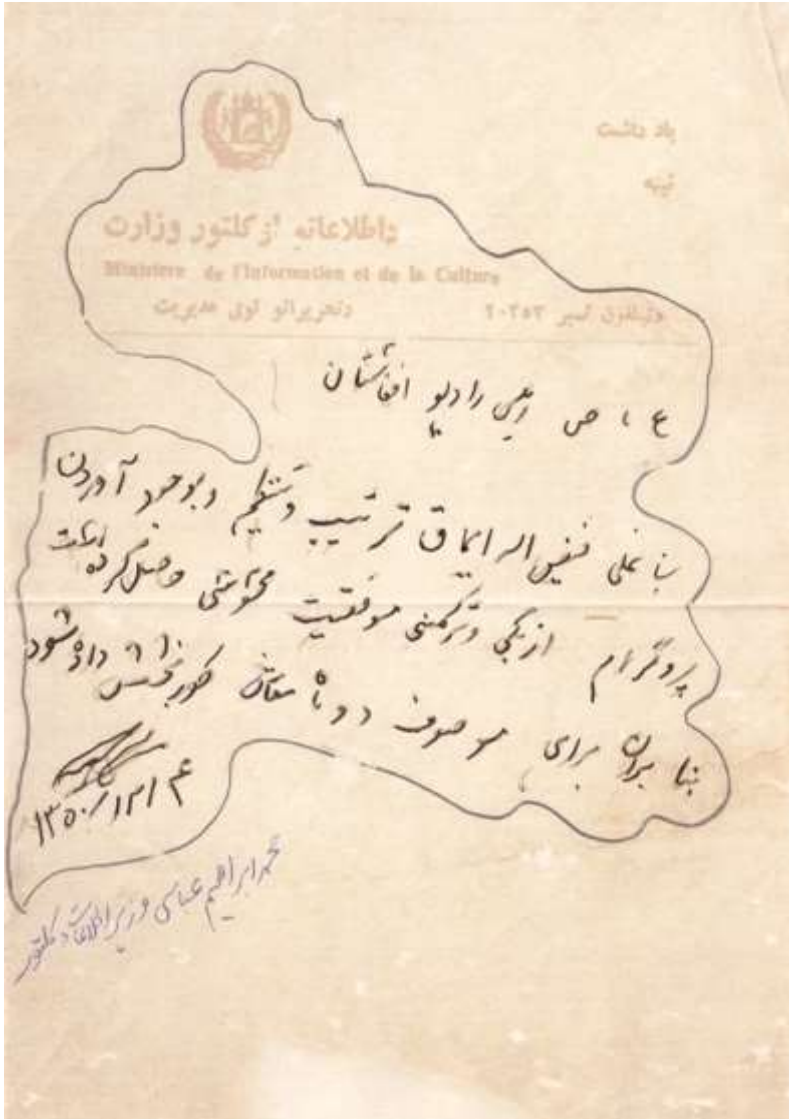 یاد داشت
نېټه
داطلاعاتو اوکلتور وزارت
Ministere de l'Information et de la Culture
دتحریراتو لوی مدیریت
دتیلفون نمبر ۲۰۳۵۳
ع ، ص رادیو افغانستان
ښاغلی فیض اله ایماق ترتیب و تنظیم و بوجود آوردن
پروگرام ازبکی و ترکمنی موفقیت حاصل کرده است
بنا بران برای موصوف دو ماه معاش طور بخشش داده شود
۱۳۵۰/۱۲/۴
محمد ابراهیم عباسی وزیر اطلاعات و کلتور